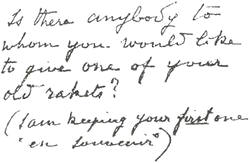 Is there anybody to
whom you would like
to give one of your
old rakets?
(I am keeping your first one
"en souvenir")